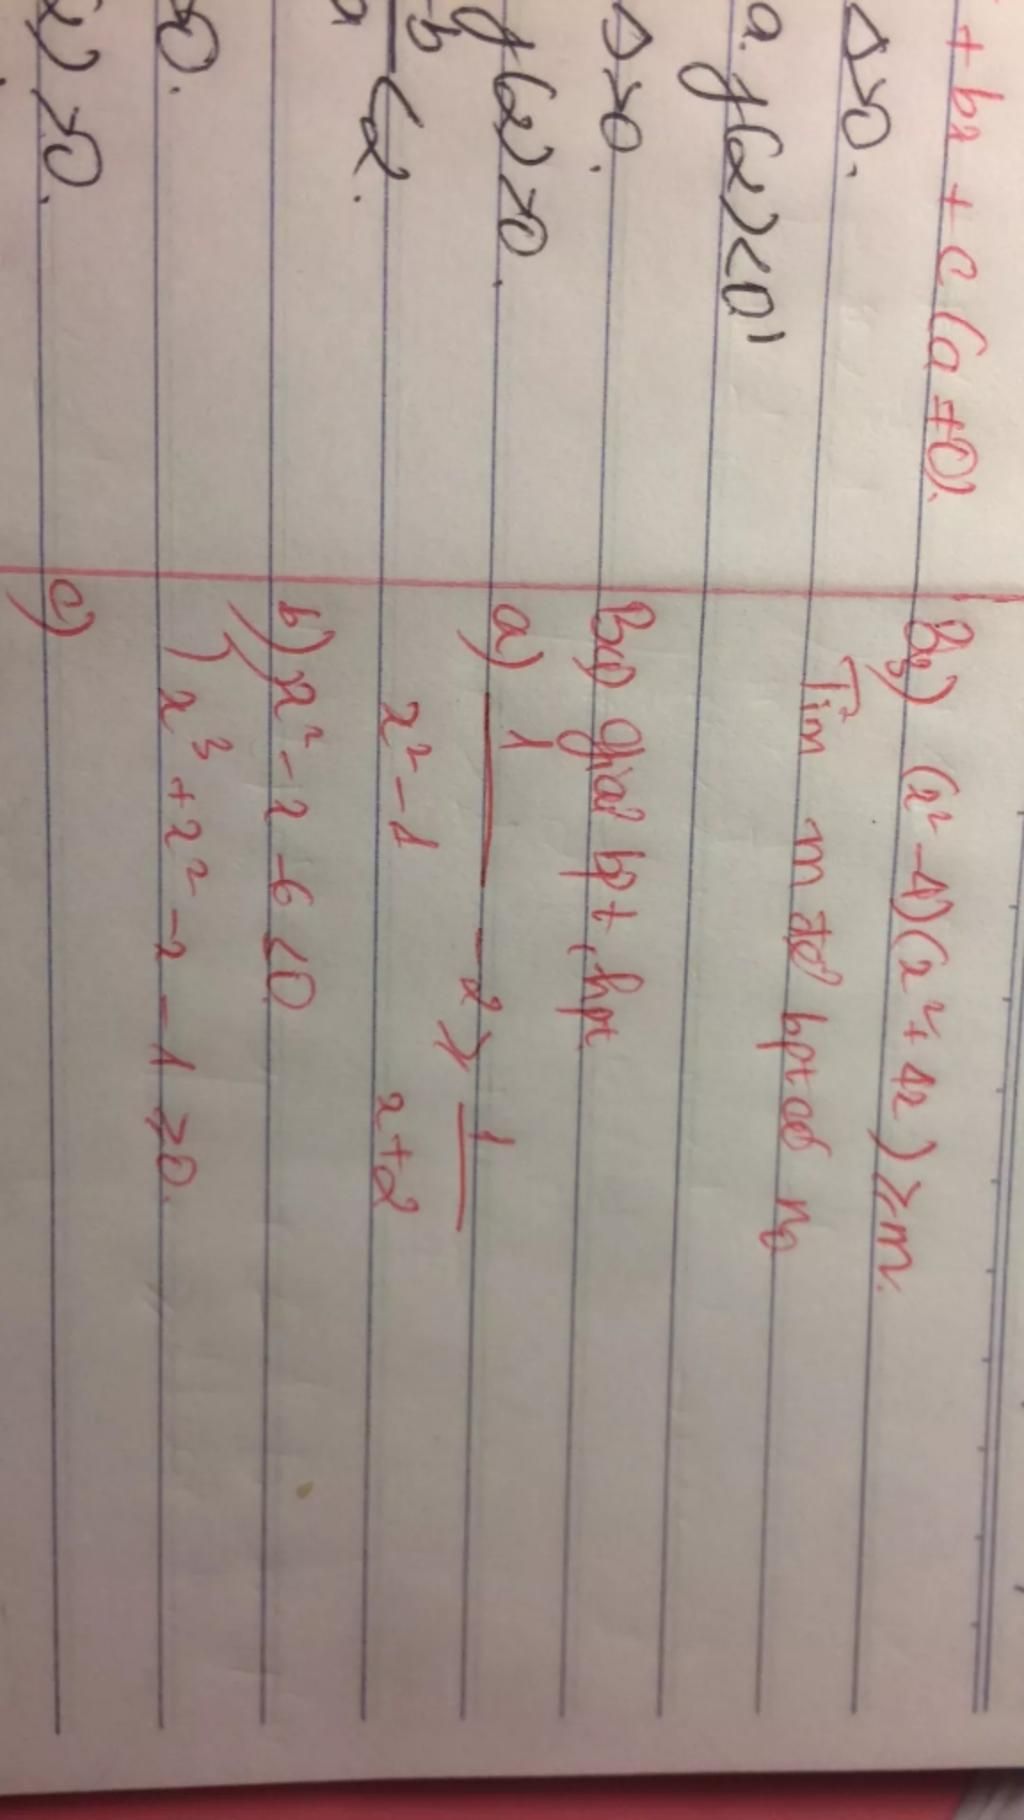 + bx + c (a ≠ 0).
Δ>0.
a. f(α) < 0
Δ>0.
f(α) >0.
-b
< α.
a
>0.
>0.
B3) (x² - 4)(x² + 4x) ≥ m.
Tìm m để bpt có no
B4) giải bpt, hpt
a) 1/(x² - 1) - 2 ≥ 1/(x+2)
b) { x² - x - 6 < 0
x³ + x² - x - 1 ≥ 0.
c)